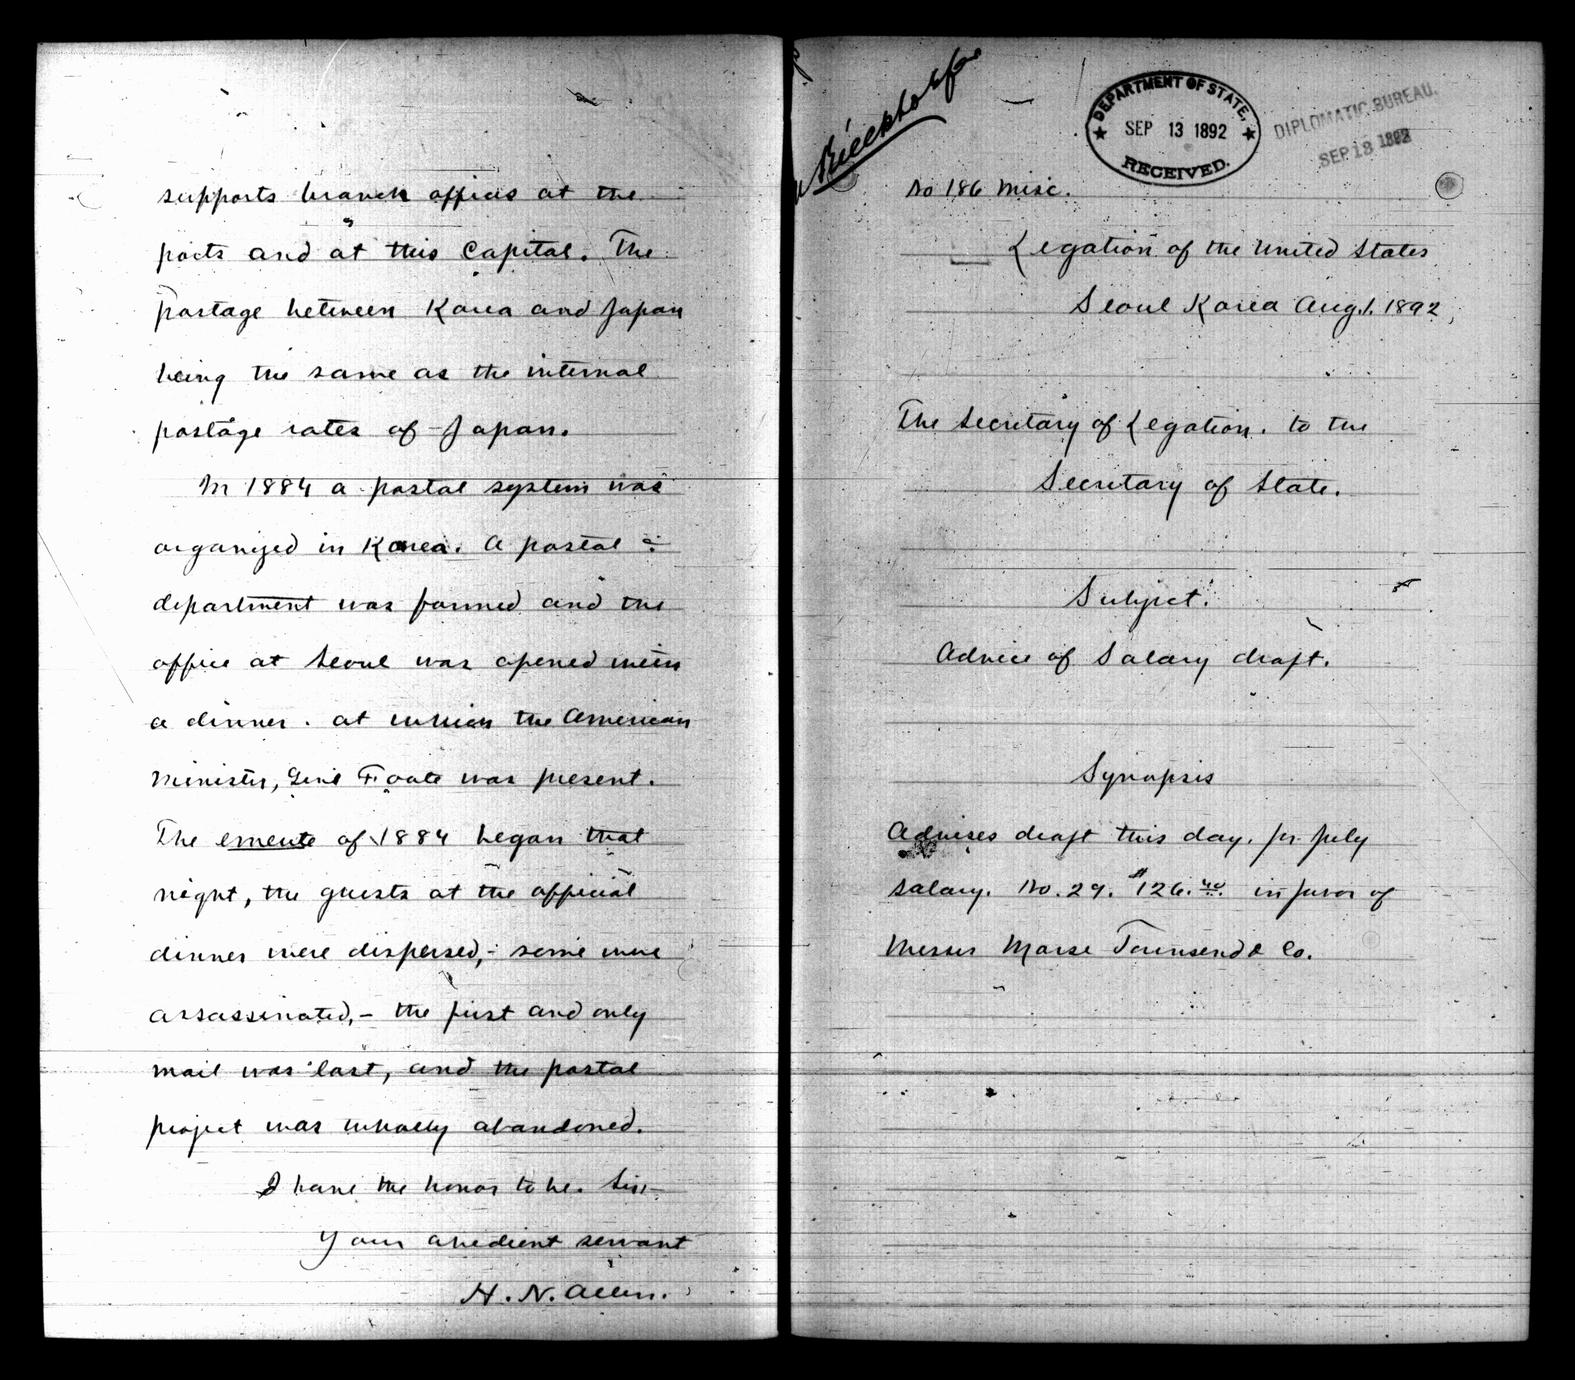 supports branch offices at the
ports and at this Capital. The
postage between Korea and Japan
being the same as the internal
postage rates of Japan.
In 1884 a postal system was
organized in Korea. A postal
department was formed and the
office at Seoul was opened with
a dinner. at which the American
Minister, Genl Foote was present.
The emeute of 1884 began that
night, the guests at the official
dinner were dispersed,- some were
assassinated,- the first and only
mail was lost, and the postal
project was wholly abandoned.
I have the honor to be. Sir
Your obedient servant
H. N. Allen.
DEPARTMENT OF STATE,
SEP 13 1892
RECEIVED.
DIPLOMATIC BUREAU.
SEP 13 1892
No 186 Misc.
Legation of the United States
Seoul Korea Aug. 1. 1892,
The Secretary of Legation. to the
Secretary of State.
Subject.
Advice of Salary draft.
Synopsis
Advises draft this day. for July
salary. No. 29. $126.40 in favor of
Messrs Morse Townsend & Co.